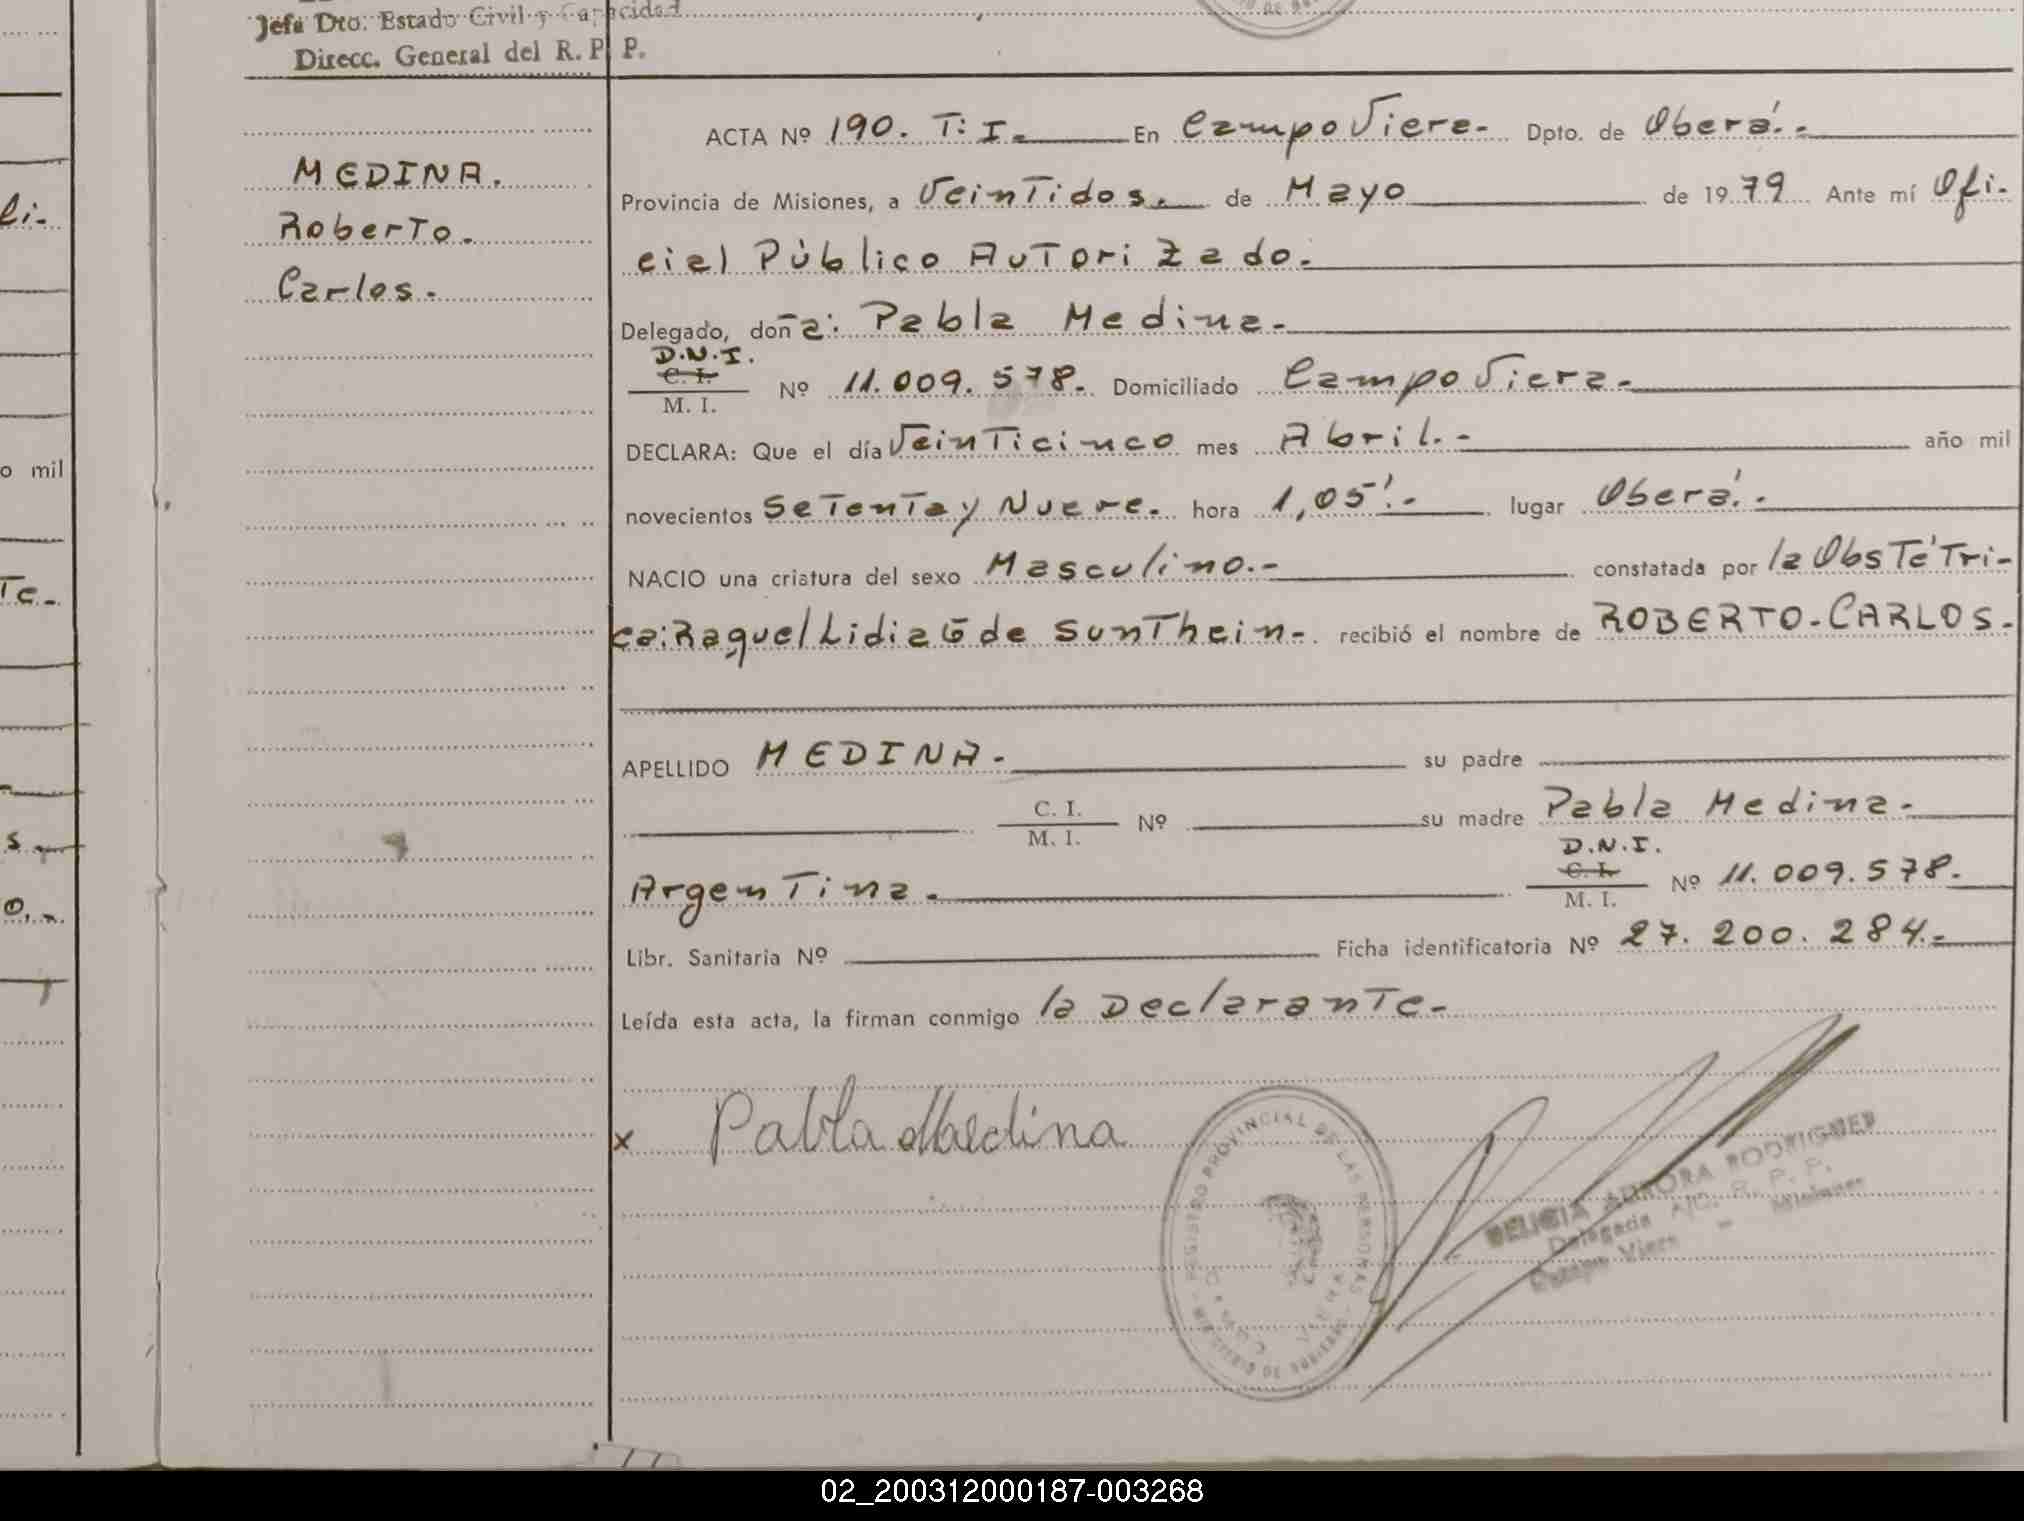 Jefa Dto. Estado Civil y Capacidad
Direcc. General del R. P. P.
MEDINA.
Roberto.
Carlos.
ACTA Nº 190. T: I.- En Campo Viera.- Dpto. de Oberá.-
Provincia de Misiones, a Veintidos. de Mayo de 1979 Ante mí Ofi-
cial Público Autorizado.
Delegado, doña: Pabla Medina.-
D.N.I.
C. I.
M. I. Nº 11.009.578. Domiciliado Campo Viera.-
DECLARA: Que el día Veinticinco mes Abril.- año mil
novecientos Setenta y Nueve. hora 1,05'.- lugar Oberá.-
NACIO una criatura del sexo Masculino.- constatada por la Obstétri-
ca: Raquel Lidia G de Sunthein.- recibió el nombre de ROBERTO-CARLOS.
APELLIDO MEDINA.- su padre
C. I.
M. I. Nº su madre Pabla Medina.-
D.N.I.
Argentina.- C. I.
M. I. Nº 11.009.578.
Libr. Sanitaria Nº Ficha identificatoria Nº 27.200.284.-
Leída esta acta, la firman conmigo la Declarante.-
x Pabla Medina
REGISTRO PROVINCIAL DE LAS PERSONAS
DELICIA AURORA RODRIGUEZ
Delegada A/C. R. P. P.
Campo Viera - Misiones
o mil
02_200312000187-003268